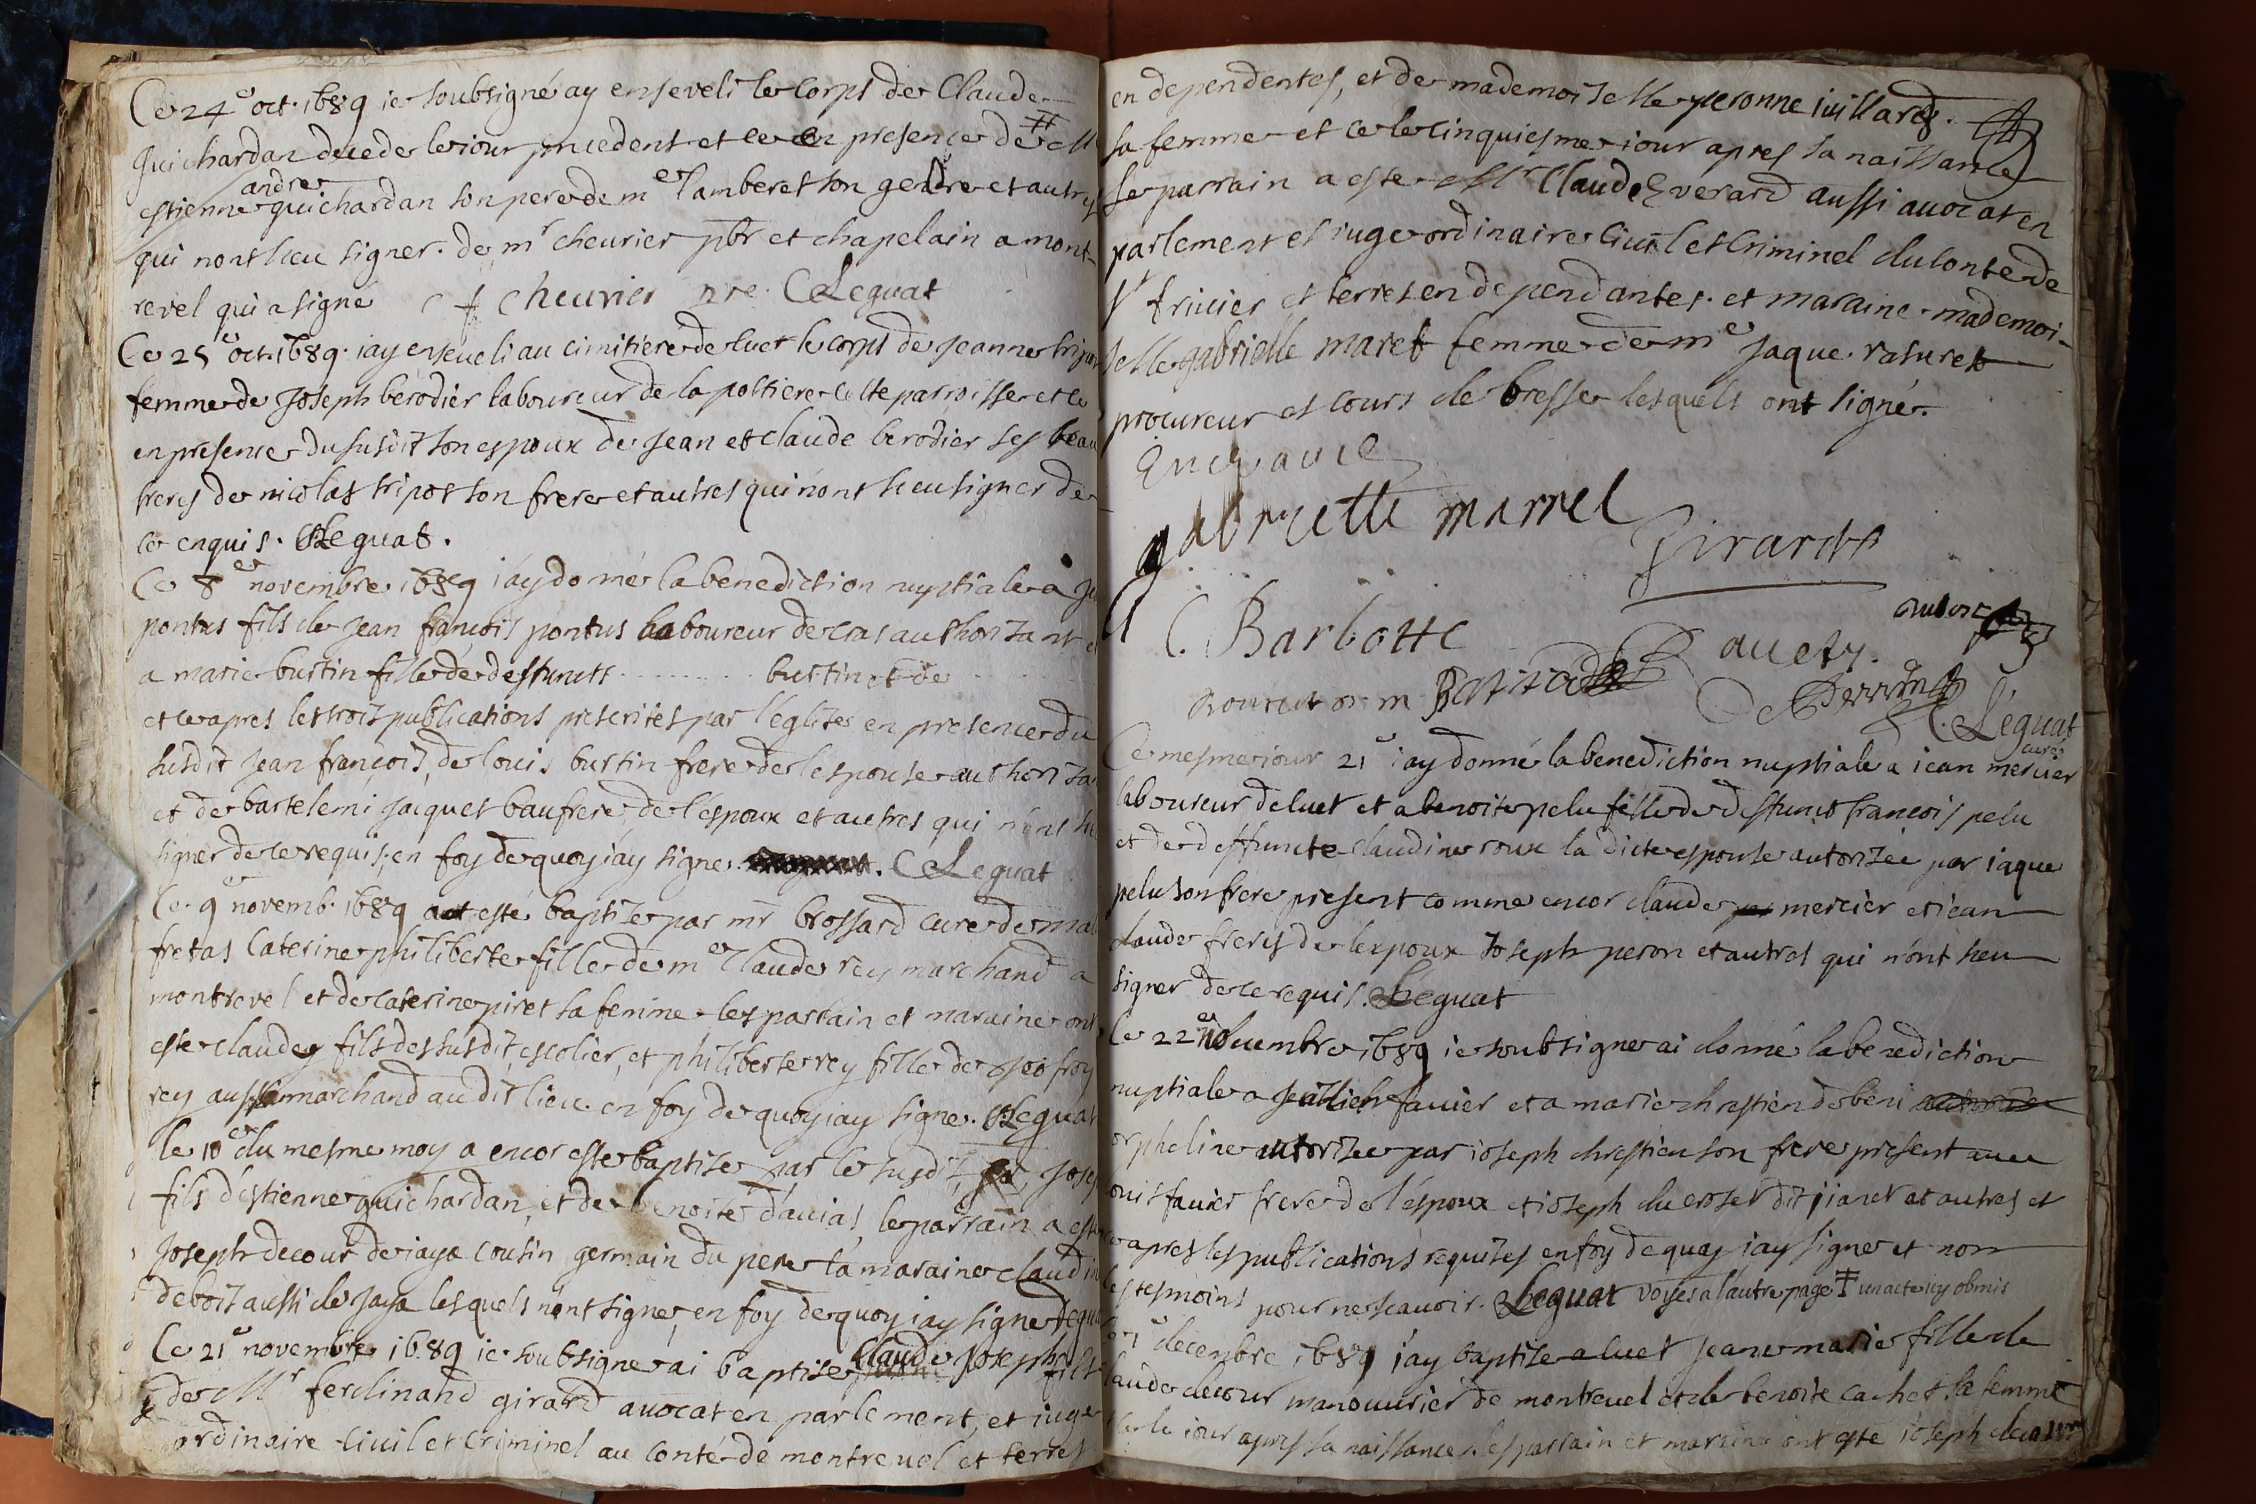 Ce 24e oct. 1689 ie soubsigné ay enseveli le corps de Claude
guichardan decede le iour precedent et ce en presence de
estienne andre guichardan son pere de me lamberet son gendre et autres
qui nont sceu signer. de mr cheurier pbr et chapelain a mont-
revel qui a signé cheurier pre. CLeguat
Ce 25e oct. 1689. iay enseveli au cimitiere de luet le corps de Jeanne tripot
femme de Joseph berodier laboureur de la poltiere cette parroisse et ce
en presence du susdit son espoux de Jean et claude berodier ses beau
freres de nicolas tripot son frere et autres qui nont sceu signer de
ce enquis. CLeguat.
Ce 8e novembre 1689 iay doné la benediction nuptiale a
pontus fils de Jean francois pontus laboureur de cras authorizant
a marie burtin fille de deffuncts .......... burtin et de
et ce apres les trois publications prescrites par l'église en presence du
susdit Jean françois, de louis burtin frere de lespouse authoriza
et de bartelemi Jacquet baufrere de l'espoux et autres qui nont
signer de ce requis, en foy de quoy iay signe. CLeguat
Ce 9e novemb. 1689 a esté baptize par mr brossard cure de mal
fretas Caterine philiberte fille de me Claude rey marchand a
montrevel et de Caterine piret sa femme. les parrain et maraine ont
este claude fils dessusdit, escolier, et philiberte rey fille de
rey aussi marchand audit lieu. en foy de quoy iay signe. CLeguat
le 10e du mesme moy a encor esté baptize par le susdit Jose
fils destienne guichardan, et de benoite dauias, le parrain a este
Joseph decour de iaya cousin germain du pere la maraine claudin
debost aussi de Jaya lesquels nont signe, en foy de quoy iay signe
Ce 21e novembre 1689 ie soubsigne ai baptise Claude Joseph fils
de Mr ferdinand girard avocat en parlement, et iuge
ordinaire civil et criminel au conté de montrevel et terres
en dependentes, et de mademoiselle peronne iuillard.
sa femme et ce le cinquiesme iour apres sa naissance
le parrain a este Mr Claude Everard aussi avocat en
parlement et iuge ordinaire civil et criminel du conté de
st trivier et terres en dependantes. et maraine mademoi-
selle gabrielle maret femme de me Jaque rasuret
procureur es cours de bresse lesquels ont signé.
gabrielle marrel
Girard
C. Barbotte
Leguat
curé
Ce mesme iour 21e iay donné la benediction nuptiale a iean mercier
laboureur de luet et a benoite pelu fille de deffunct françois pelu
et de deffuncte claudine roux la dicte espouse autorizée par iaque
pelu son frere present comme encor claude mercier et iean
claude freres de lespoux Joseph peron et autres qui n'ont sceu
signer de ce requis. CLeguat
Ce 22e novembre 1689 ie soubsigne ai donné la benediction
nuptiale a favier et a marie chrestien de beni
orpheline autorizee par ioseph chrestien son frere present avec
favier frere de l'espoux et ioseph ducroset dit iiaret et autres et
ce apres les publications requizes en foy de quoy iay signe et non
les tesmoins pour ne scavoir. CLeguat voyes a l'autre page un acte icy obmis
decembre 1689 i'ay baptize a luet Jeane marie fille de
laude decour manouvrier de montrevel et de benoite cachet sa femme
iour apres sa naissance. les parrain et maraine ont esté ioseph decour